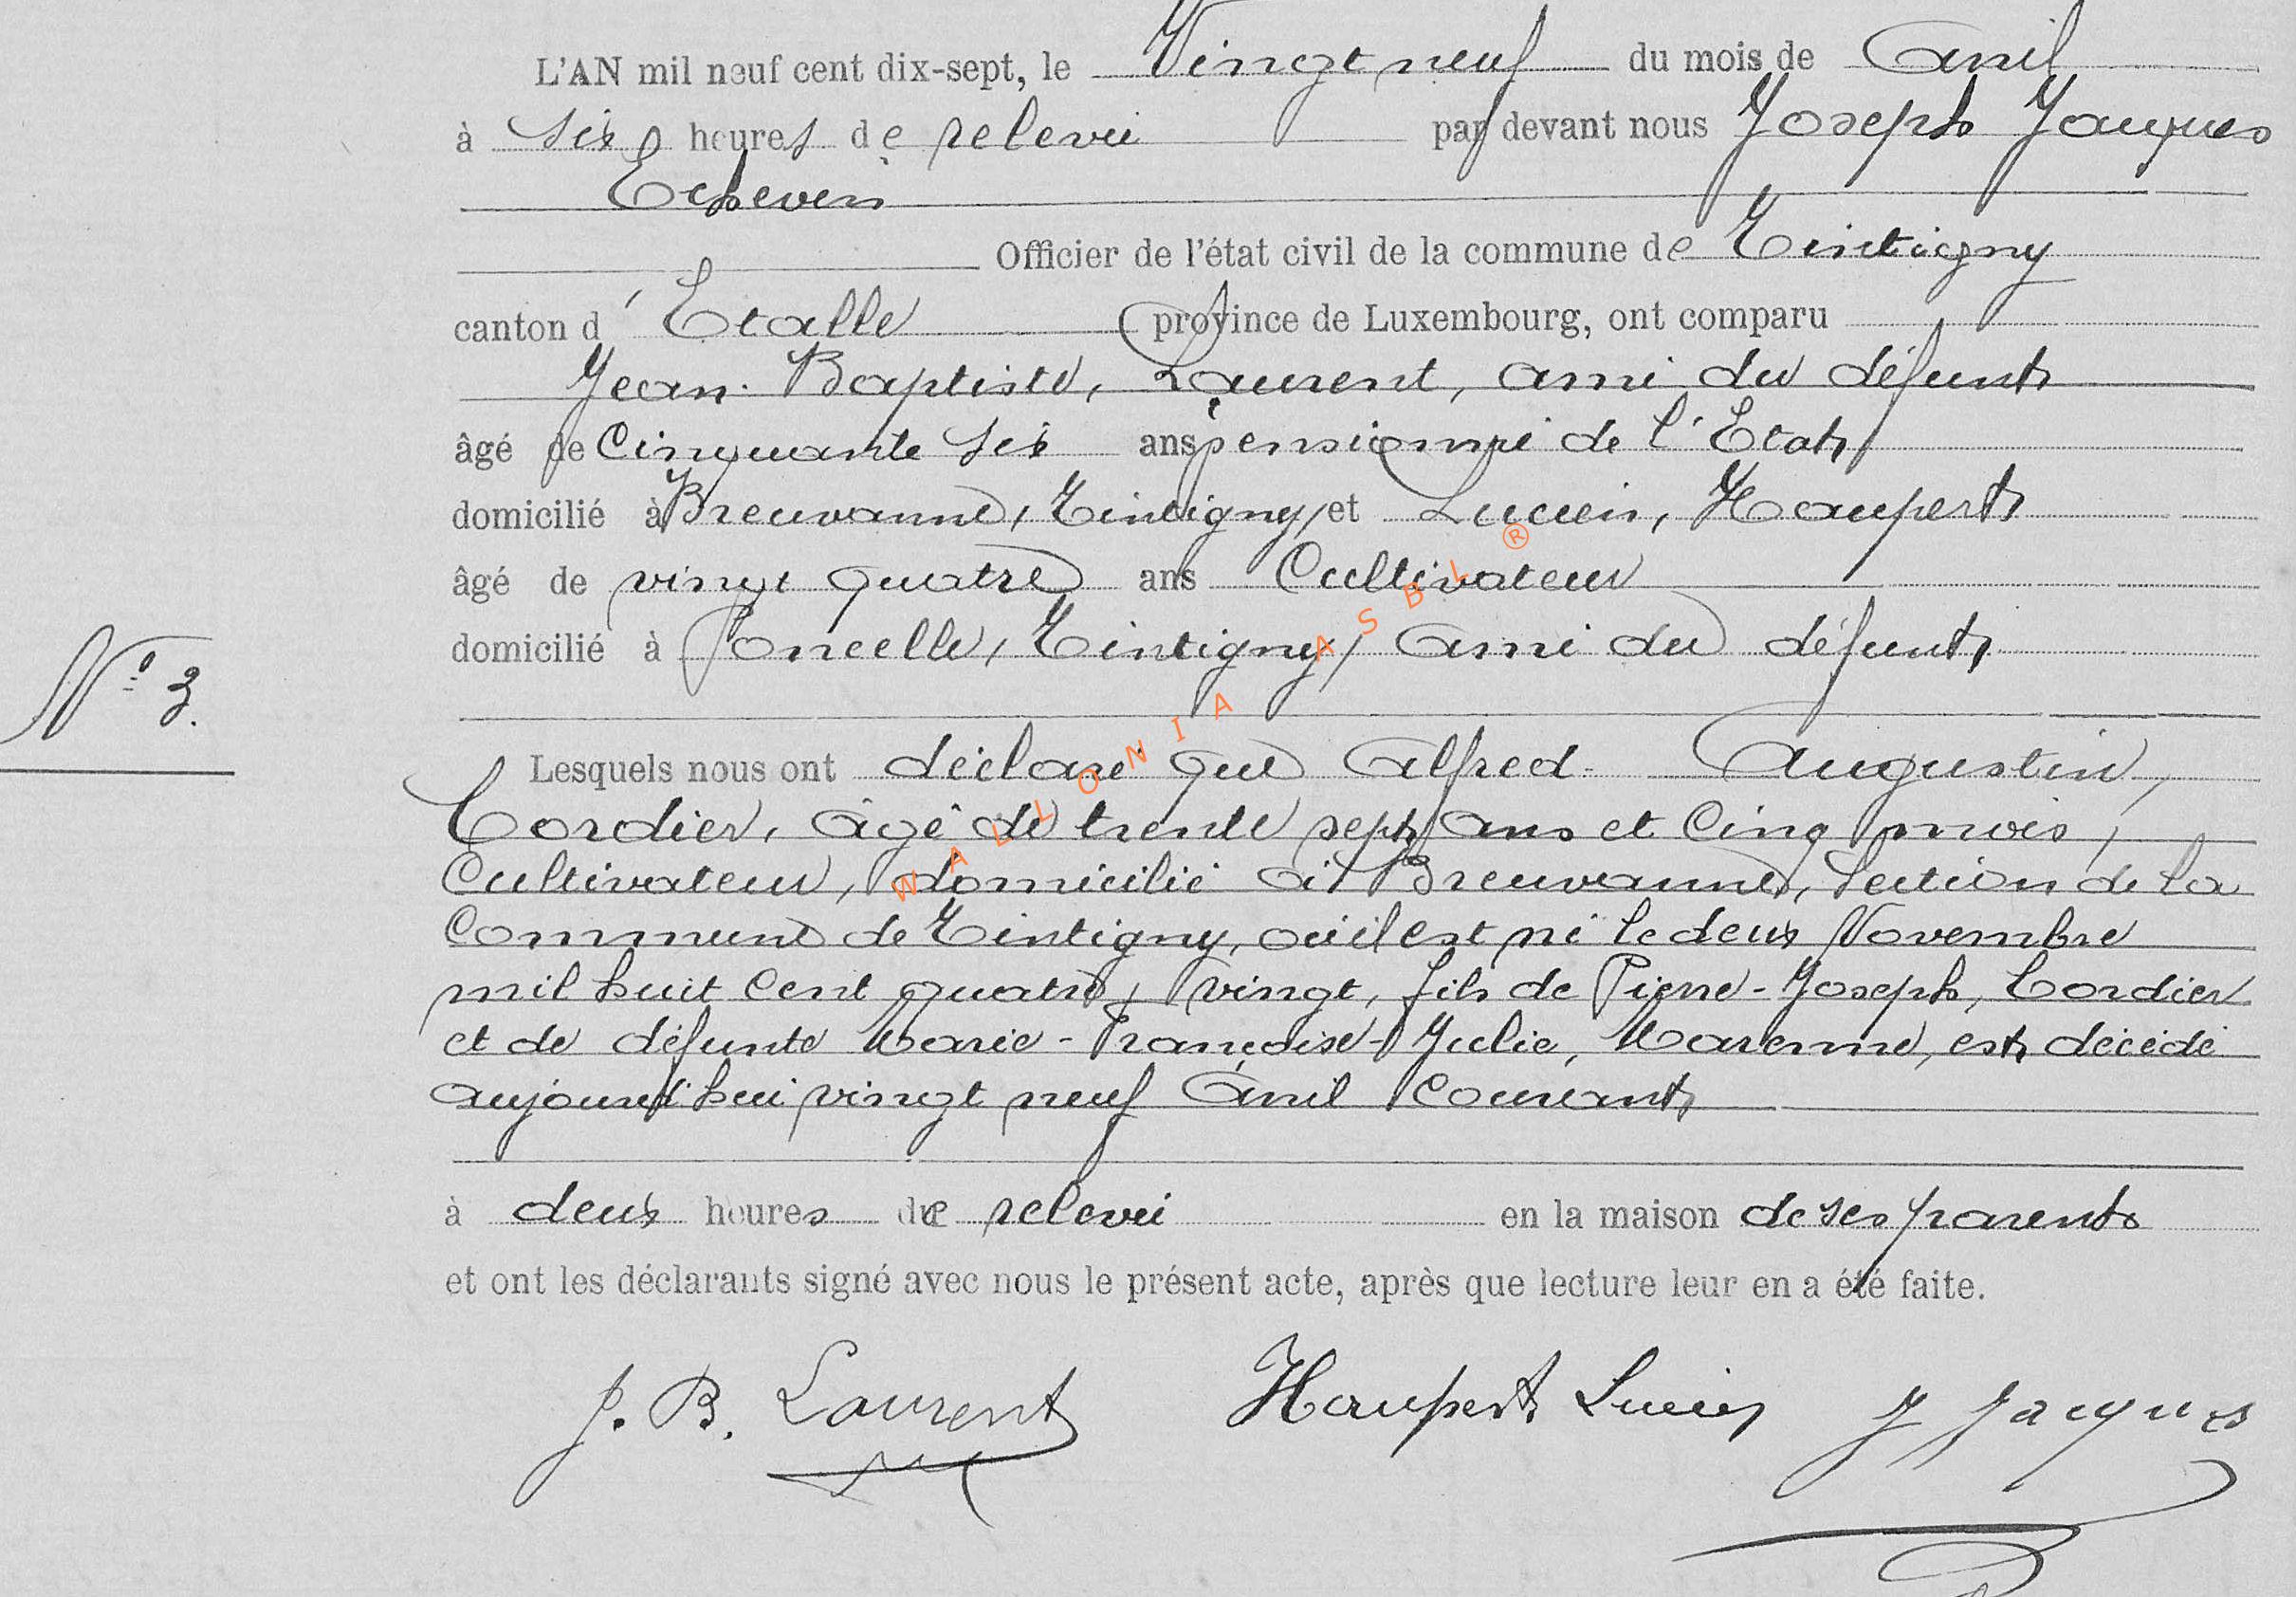 L'AN mil neuf cent dix-sept, le Vingt neuf du mois de Avril
à six heures de relevée par devant nous Joseph Jacques
Echevin
Officier de l'état civil de la commune de Tintigny
canton d'Etalle province de Luxembourg, ont comparu
Jean-Baptiste, Laurent, ami du défunt
âgé de Cinquante six ans pensionné de l'Etat
domicilié à Breuvanne, Tintigny, et Lucien, Haupert
âgé de vingt quatre ans Cultivateur
domicilié à Poncelle, Tintigny, ami du défunt
N° 3.
Lesquels nous ont déclaré que Alfred Augustin,
Cordier, âgé de trente sept ans et cinq mois,
Cultivateur, domicilié à Breuvanne, Section de la
Commune de Tintigny, où il est né le deux Novembre
mil huit cent quatre vingt, fils de Pierre-Joseph, Cordier
et de défunte Marie-Françoise-Julie, Marenne, est décédé
aujourd'hui vingt neuf Avril Courant
à deux heures de relevée en la maison de ses parents
et ont les déclarants signé avec nous le présent acte, après que lecture leur en a été faite.
J. B. Laurent Haupert Lucien J Jacques
WALLONIA ASBL ®